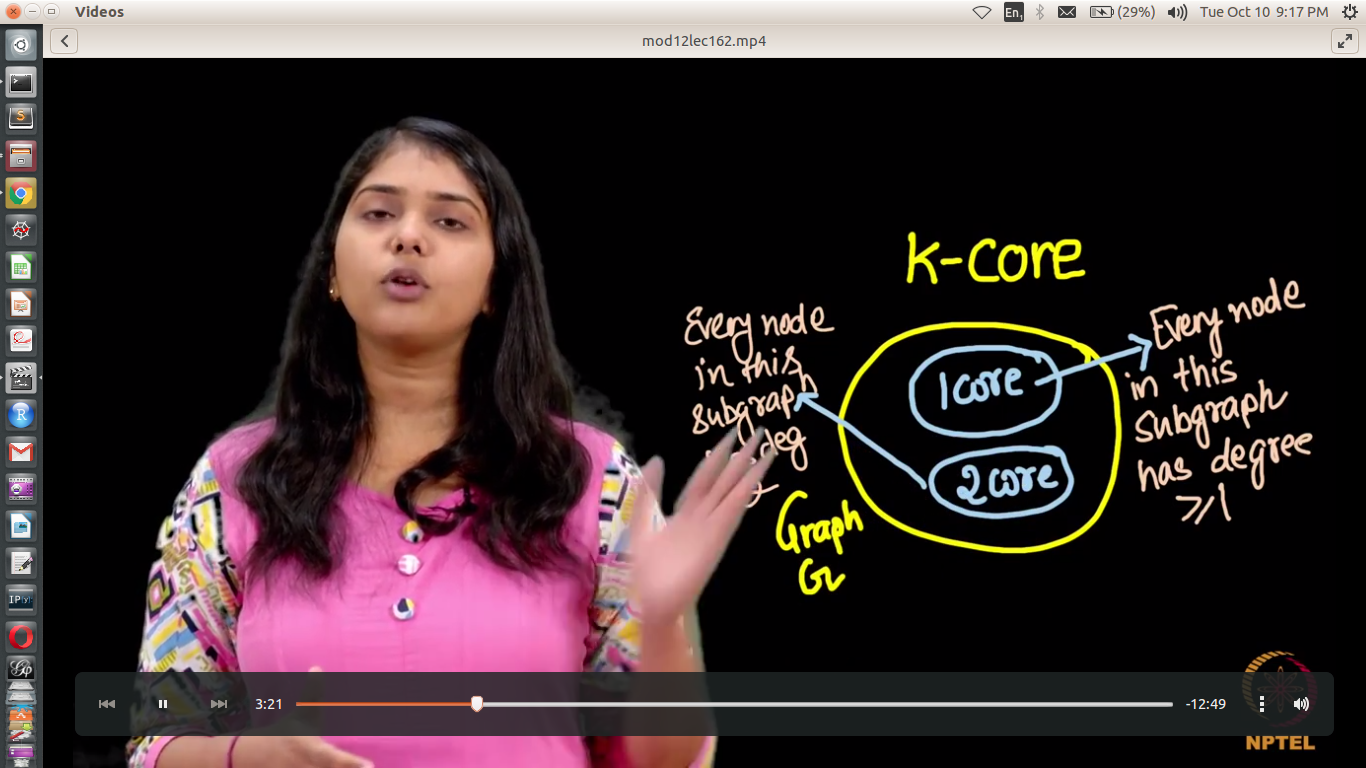 Videos
En1
(29%)
Tue Oct 10 9:17 PM
mod12lec162.mp4
K-Core
Every node
in this
subgraph
deg
1core
2core
Every node
in this
Subgraph
has degree
≥1
Graph
G
3:21
-12:49
NPTEL
IP[y]: